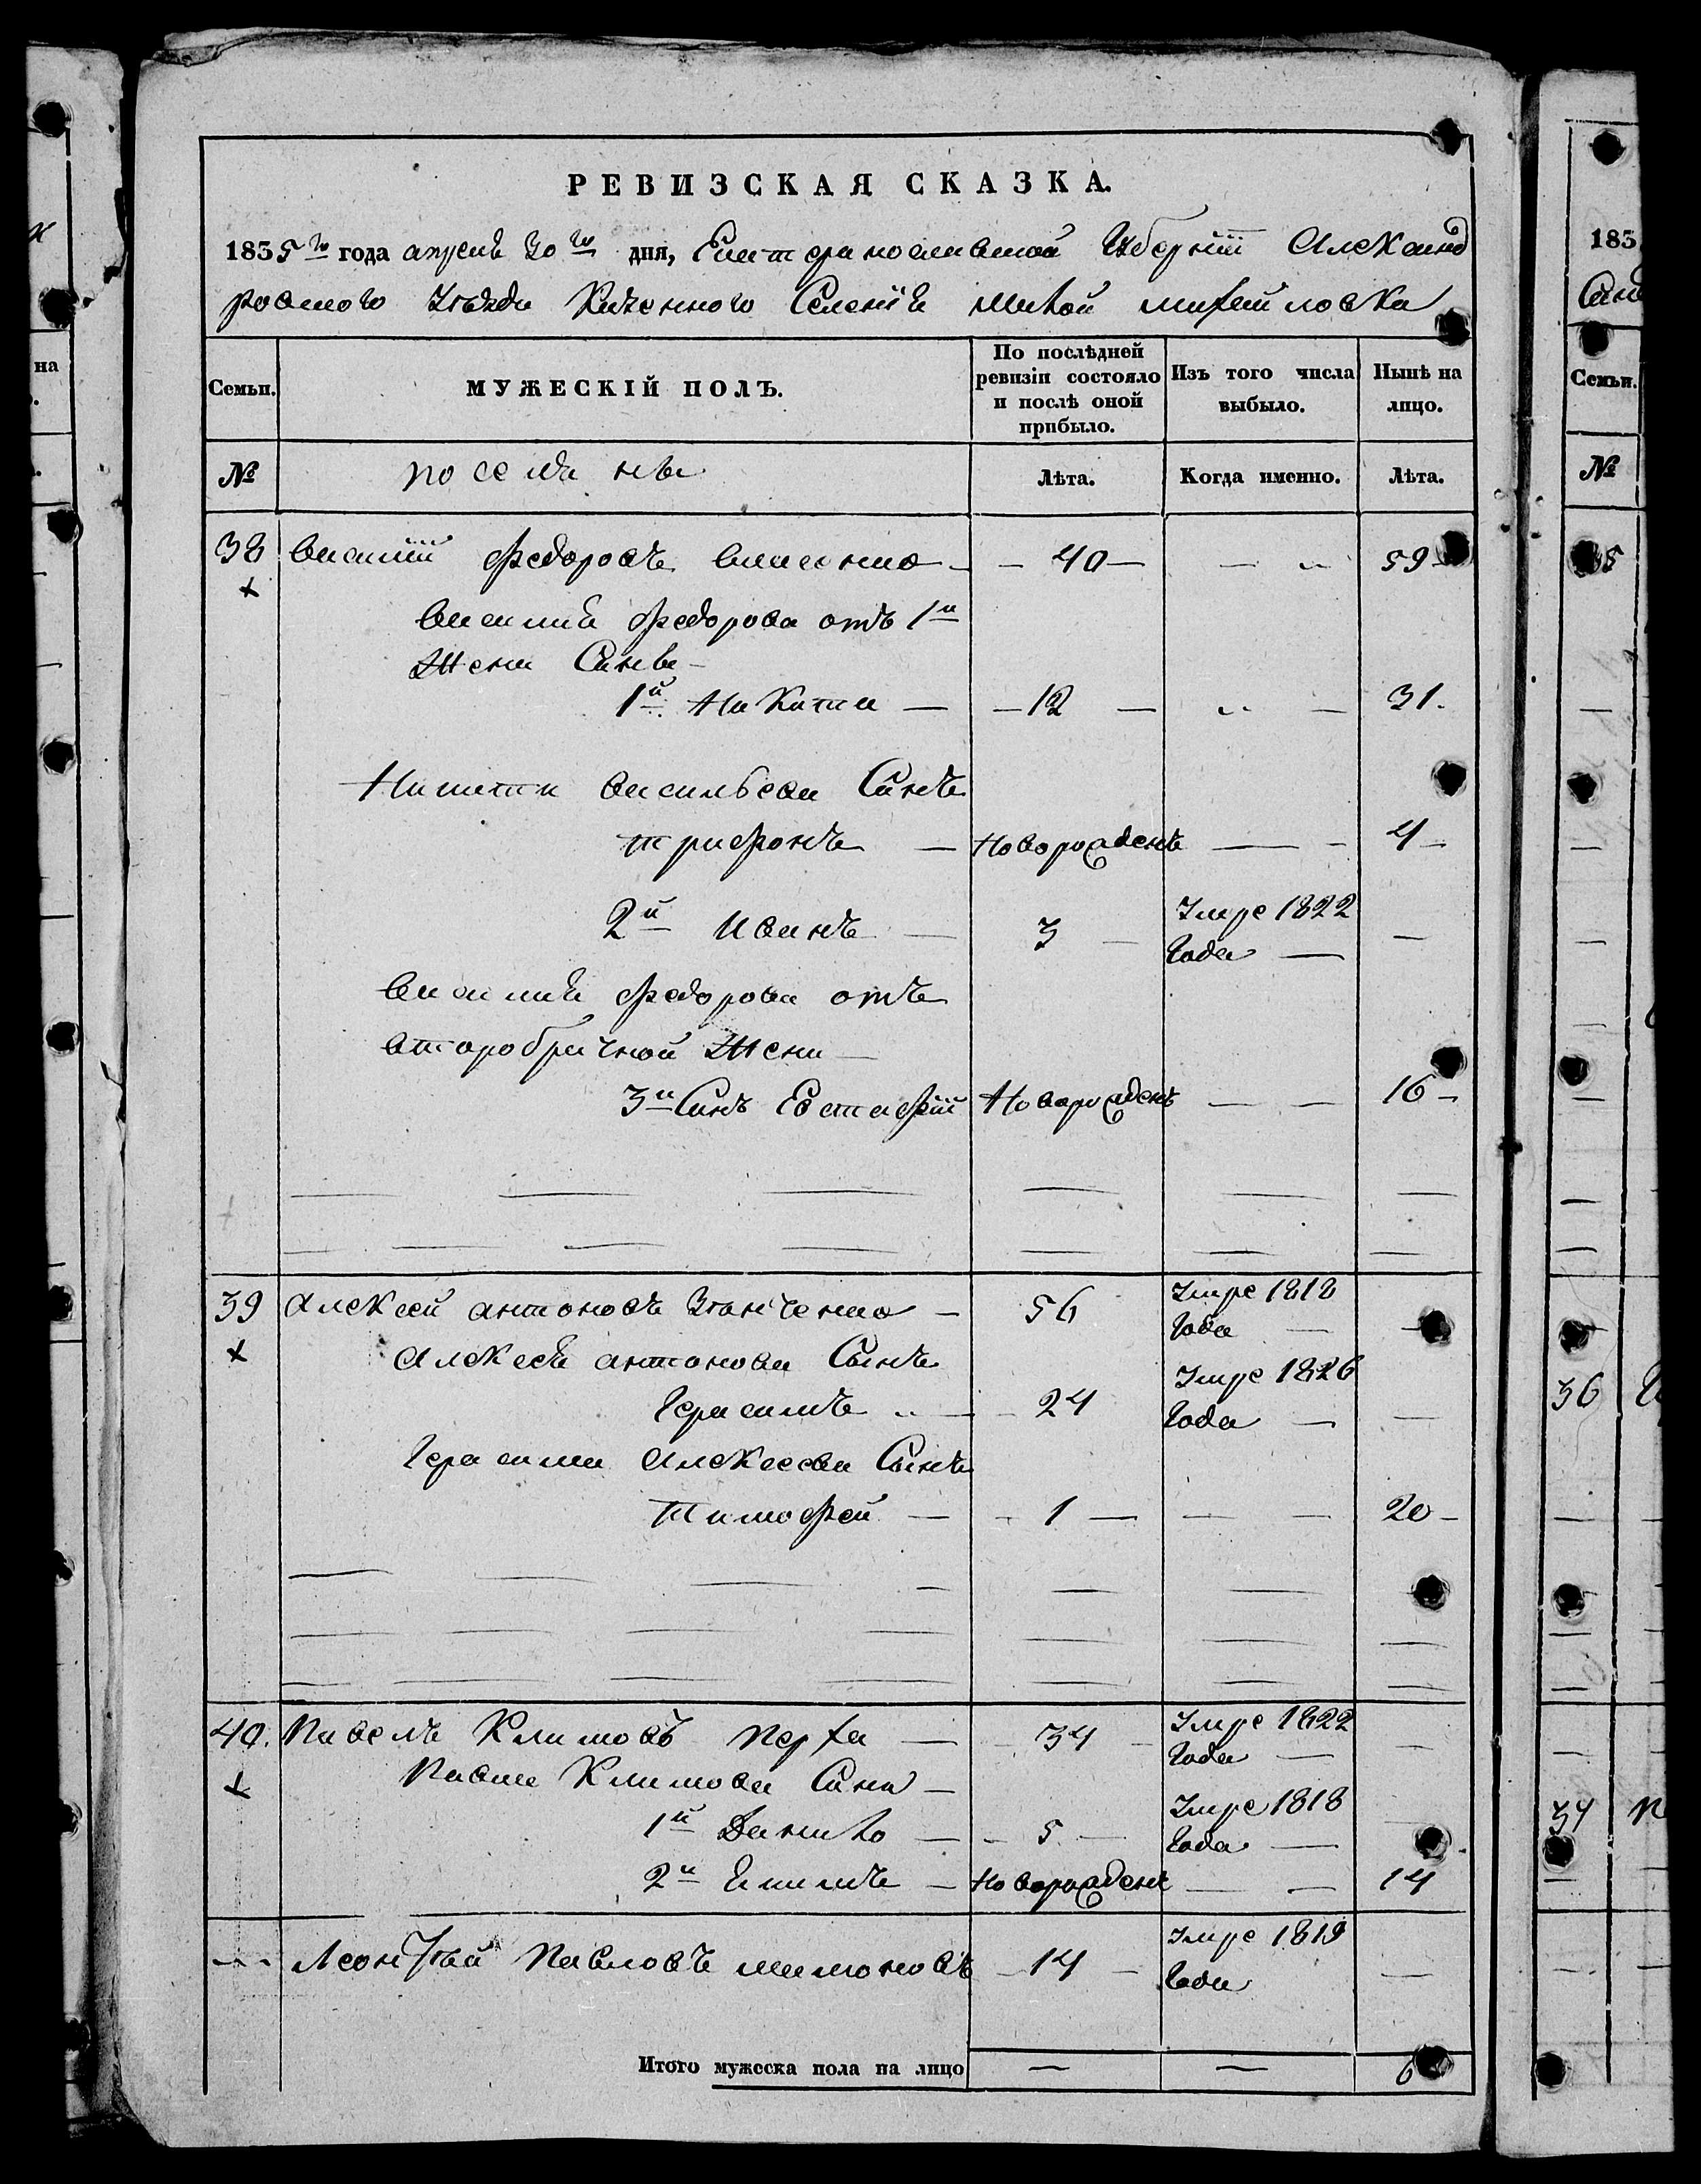 РЕВИЗСКАЯ СКАЗКА.
1835 го года апреля 30 го дня, Екатеринославской Губерніи Александ
ровского Уезда Казенного Селенія Малой Михайловки
Семьи.
МУЖЕСКІЙ ПОЛЪ.
По послѣдней ревизіи состояло и послѣ оной прибыло.
Изъ того числа выбыло.
Нынѣ на лицо.
№
поселяне
Лѣта.
Когда именно.
Лѣта.
38 Василий Федоровъ Власенко — 40 — — 59
Василия Федорова отъ 1й
Жени Сини
1й Никита — 12 — — 31.
Никити Васильева Синъ
Трифонъ — Новорожденъ — 4
2й Иванъ — 3 — Умре 1822 Года —
Василия Федорова отъ
второбрачной Жени —
3й Синъ Евстафій Новорожденъ — — 16
39 Алексей Антоновъ — 56 Умре 1818 Года —
Алексея Антонова Сынъ
Герасимъ — 24 Умре 1826 Года —
Герасима Алексеева Сынъ
Тимофей — 1 — — 20
40. Павелъ Климовъ — 34 — Умре 1822 Года —
Павла Климова Сини —
1й Данило — 5 — Умре 1818 Года —
2й — Новорожденъ — — 14
Леонтий Павловъ — 14 — Умре 1819 Года —
Итого мужеска пола на лицо — — 6
на
183
Семьи.
№
35
36
37